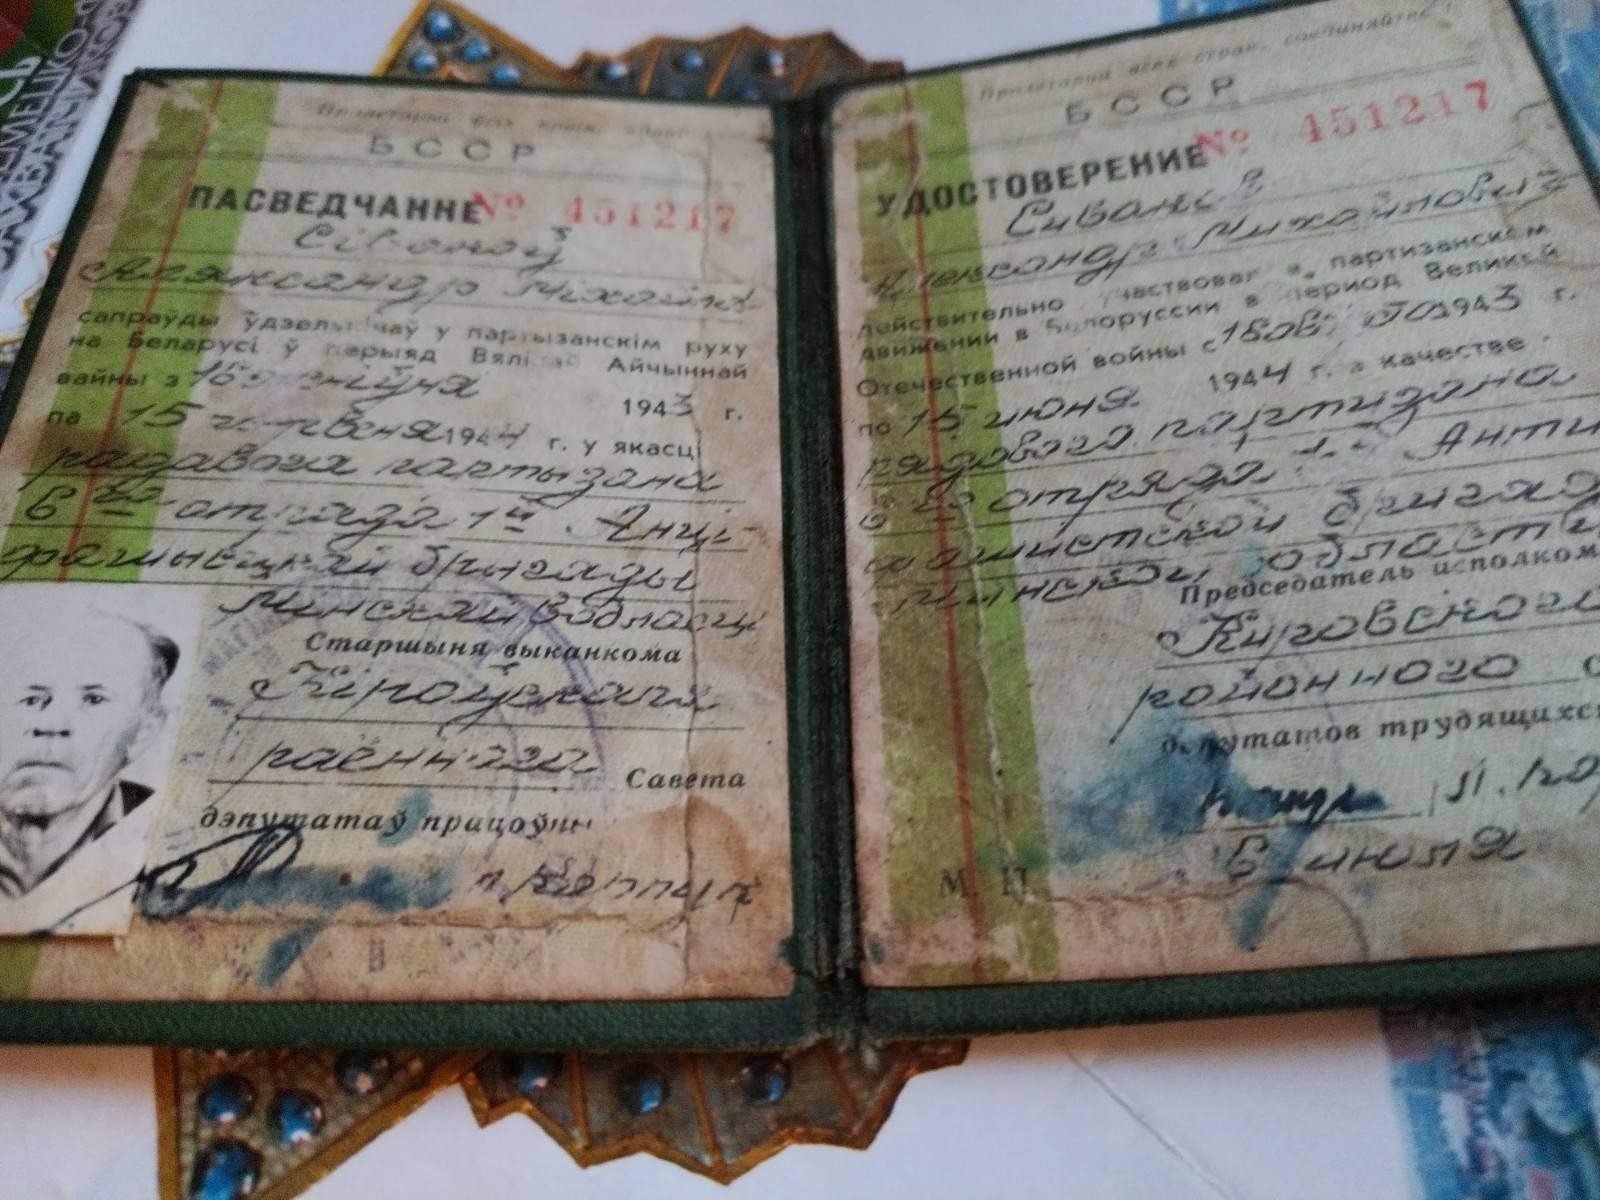 Пралетарыі ўсіх краін,
БССР
ПАСВЕДЧАННЕ № 451217
Сіваноў
Аляксандр Міхайлав.
сапраўды ўдзельнічаў у партызанскім руху
на Беларусі ў перыяд Вялікай Айчыннай
вайны з 18 жніўня 1943 г.
па 15 чэрвеня 1944 г. у якасці
радавога партызана
6 го отрада 1й Анці-
фашысцкай брыгады
Мінскай вобласці
Старшыня выканкома
Кіраўскага
раённага Савета
дэпутатаў працоўных
Пролетарии всех стран, соединяйтесь!
БССР
УДОСТОВЕРЕНИЕ № 451217
Сиванов
Александр Михайлович
действительно участвовал в партизанском
движении в Белоруссии в период Великой
Отечественной войны с 18 1943 г.
по 15 июня 1944 г. в качестве
рядового партизана
6 го отряда 1-й Анти
фашистской бригады
Минской области
Председатель исполкома
Кировского
районного С
депутатов трудящихся
6 июля
М. П.